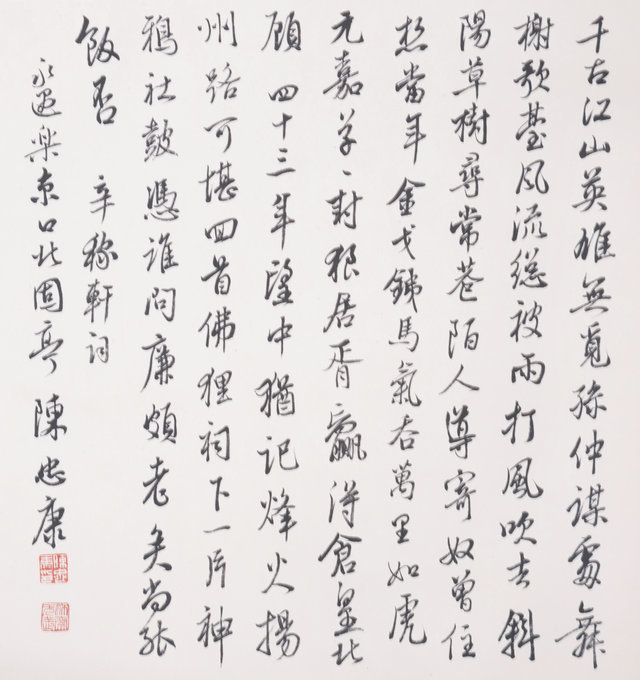 千古江山英雄無覓孫仲謀處舞
榭歌臺風流總被雨打風吹去斜
陽草樹尋常巷陌人導寄奴曾住
想當年金戈銕馬氣吞萬里如虎
元嘉草〻封狼居胥贏得倉皇北
顧四十三年望中猶記烽火揚
州路可堪回首佛狸祠下一片神
鴉社鼓憑誰問廉頗老矣尚能
飯否 辛稼軒詞
永遇樂京口北固亭 陳忠康